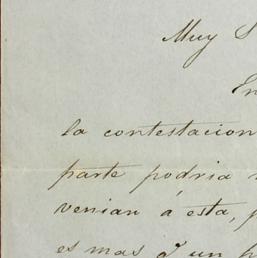 Muy S
En
la contestacion
parte podria
venian á esta,
es mas q un